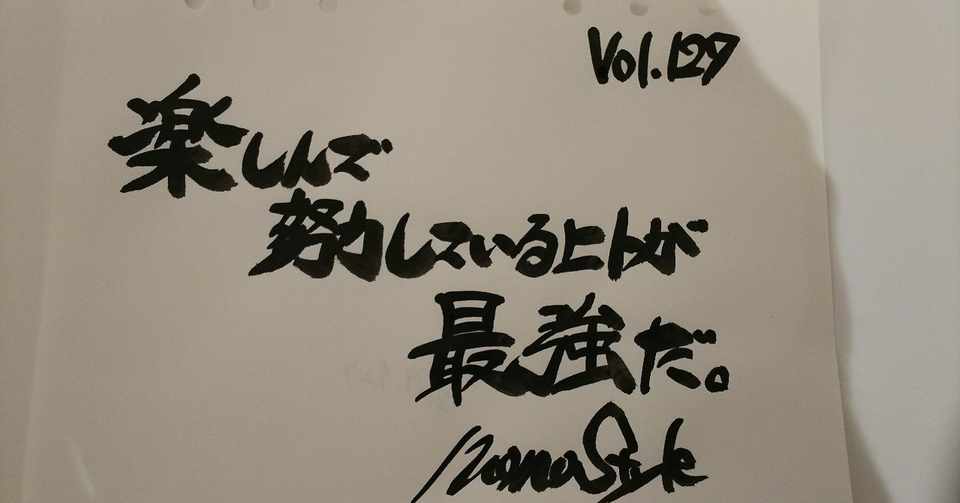 Vol.127
楽しんで
努力しているヒトが
最強だ。